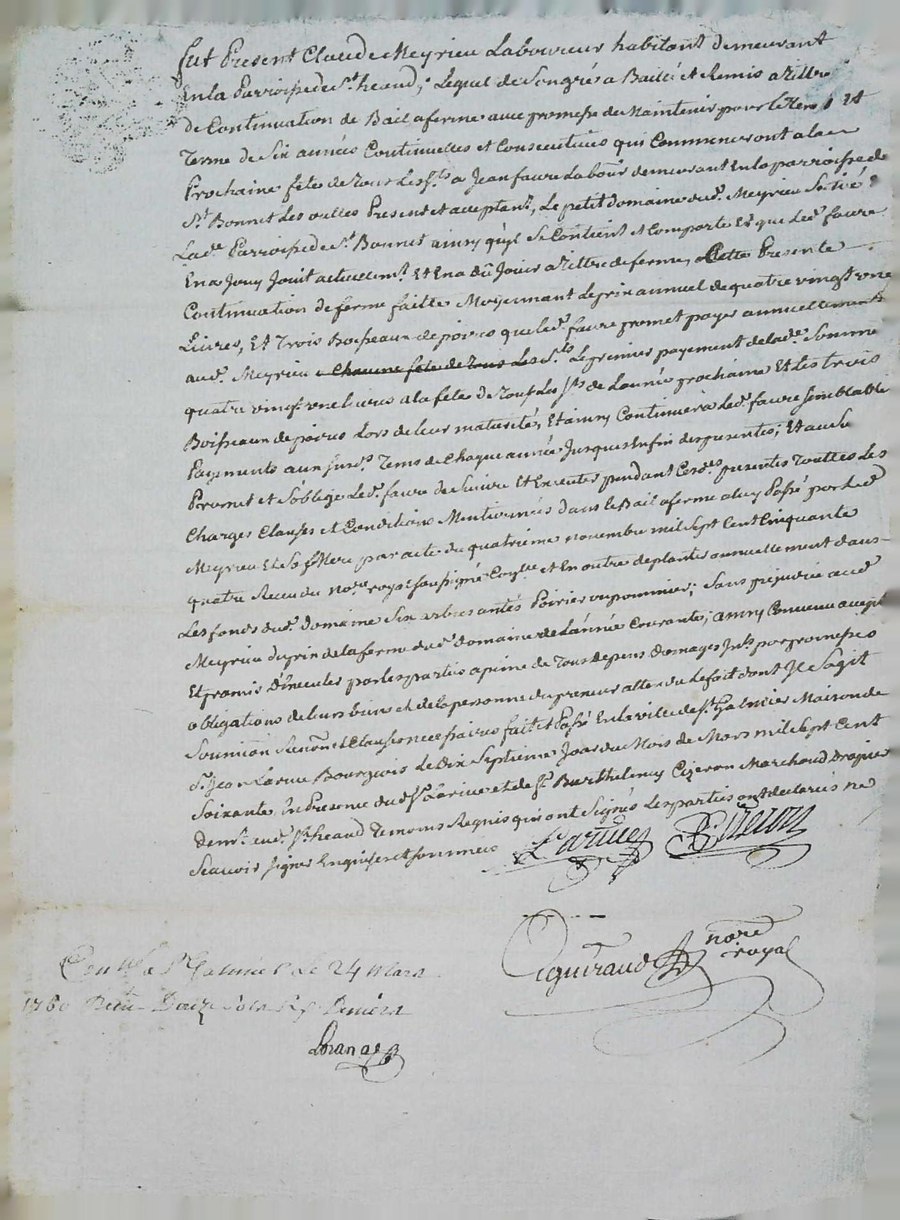 fut Present Claude Meyrieu Laboureur habitant demeurant
En la Parroisse de st. heand, Lequel de Son gré a Baillé et Remis a tittre
de Continuation de Bail a ferme avec promesse de Maintenir pour le tems et
Terme de Six années Continuelles et Consecutives qui Commenceront a la
Prochaine fêtes de tous Les sts a Jean faure Labour demeurant En la parroisse de
St Bonnet Les oulles Present et acceptant, Le petit domaine dud. Meyrieu Sitüé
La de. Parroisse de st. Bonnet ainsy quil Se Contient et Comporte Et que Led. faure
En a Jouy Jouit actuellemt. Et En a dû Jouir a tittre de ferme, Cette Presente
Continuation de ferme faitte Moyennant le prix annuel de quatre vingt une
Livres, Et Trois Boisseaux de poires que led. faure promet payer annuellement
aud. Meyrieu a Chacune fête de tous Les Sts Le premier payement de lade. Somme
quatre vingt une livres a la fête de Tous Les sts de Lannée prochaine Et Les trois
Boisseaux de poires Lors de leur maturité, Et ainsy Continuera Led. faure Semblable
Payements aux susd. tems de Chaque année Jusques Enfin des presentes; Et outre
Promet et S'oblige Led. faure de Suivre Et Executer pendant Cesdes. presentes Touttes Les
Charges Clauses et Conditions Mentionnées dans le Bail a ferme a luy Passé par led
Meyrieu Et par acte du quatrieme novembre mil Sept Cent Cinquante
quatre Recu du nore. royal Soussigné Et En outre de planter annuellement dans
Les fonds dud. domaine Six arbres antés Poirier ou pommier; Sans prejudice aud
Meyrieu du prix de la ferme dud. domaine de Lannée Courante; ainsy Convenu accepté
Et promis D'executer par les parties a peine de Tous depens domages Jnts par promesses
obligations de leurs biens et de la personne du preneur attendu le fait dont Jl S'agit
Soumion Renon et Clauses necessaires fait et Passé En la ville de st. Galmier Maison de
Sr. Jean Larue Bourgeois Le Dix Septieme Jour du Mois de Mars mil Sept Cent
Soixante En Presence dud. Sr. Larue et de Sr. Barthelemy Cizeron Marchand Drapier
demt. aud. st. heand Temoins Requis qui ont Signés Les parties ont declarés ne
Scavoir Signer Enquises et Sommees Larue B Cizeron
nore royal
Conlle. a St Galmier Le 24 Mars
1760 Recu Douze Sols Six Deniers